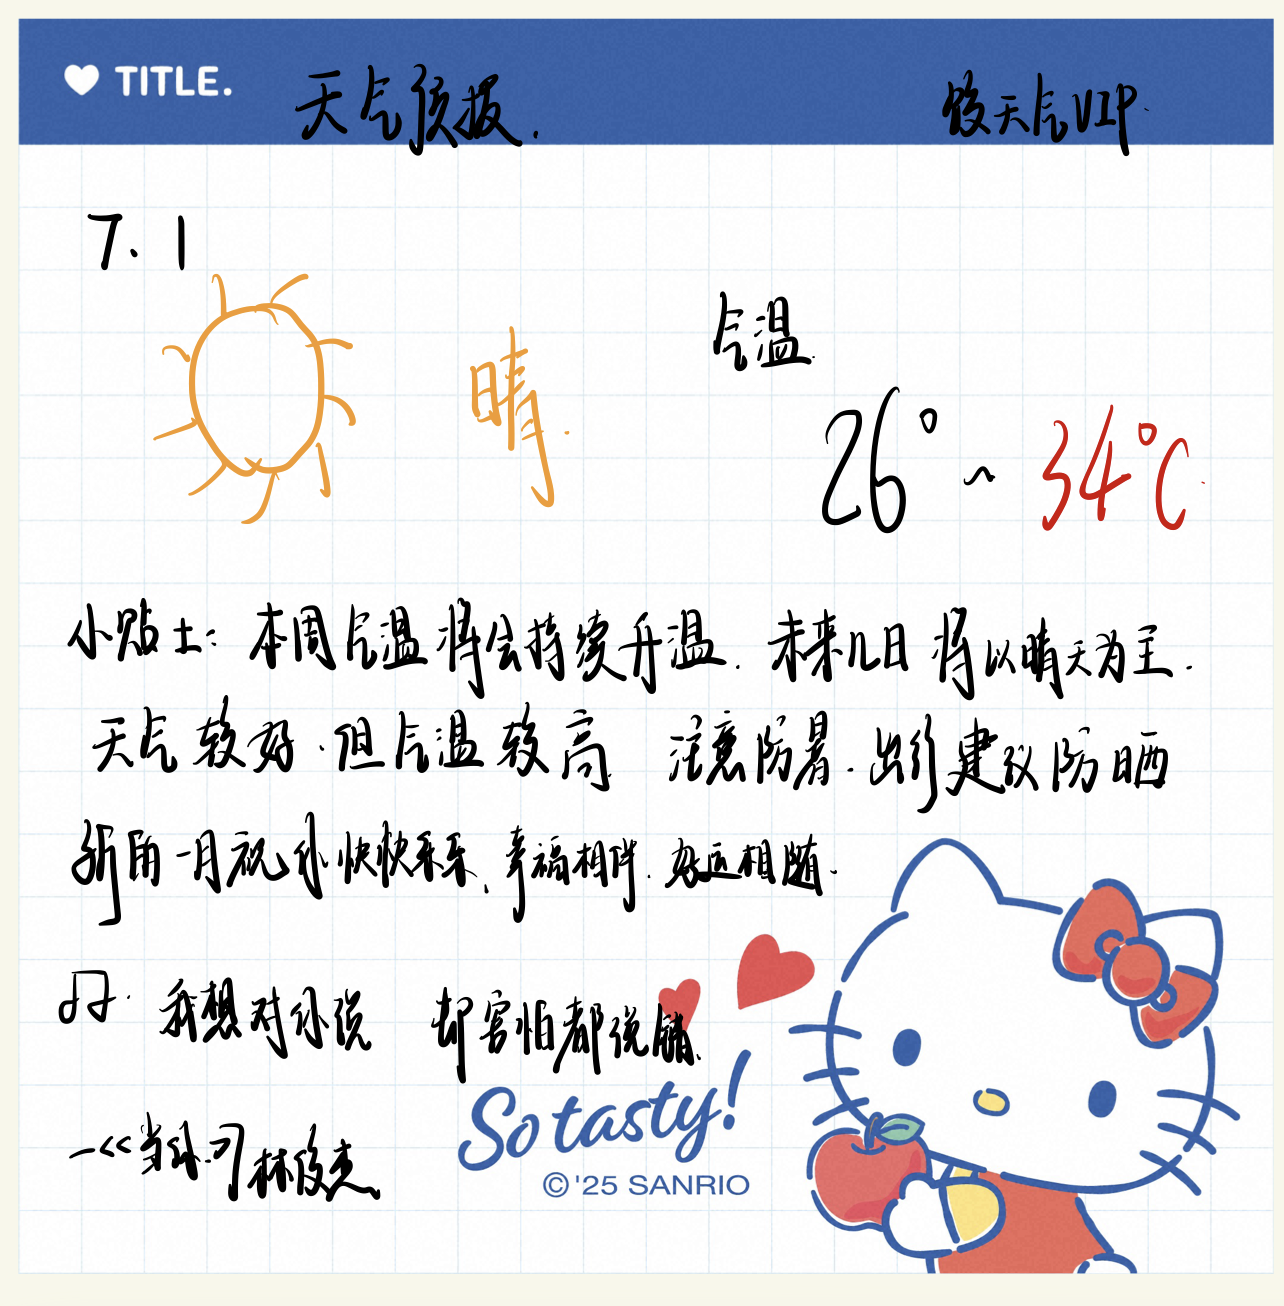 TITLE. 天气预报. 天气VIP
7.1
晴.
气温
26°~34°C
小贴士: 本周气温将会持续升温. 未来几日将以晴天为主.
天气较好.但气温较高 注意防暑.出行建议防晒
新的一月祝你快快乐乐、幸福相伴.好运相随.
我想对你说 却害怕都说错
—<<当你>>林俊杰
So tasty!
©'25 SANRIO